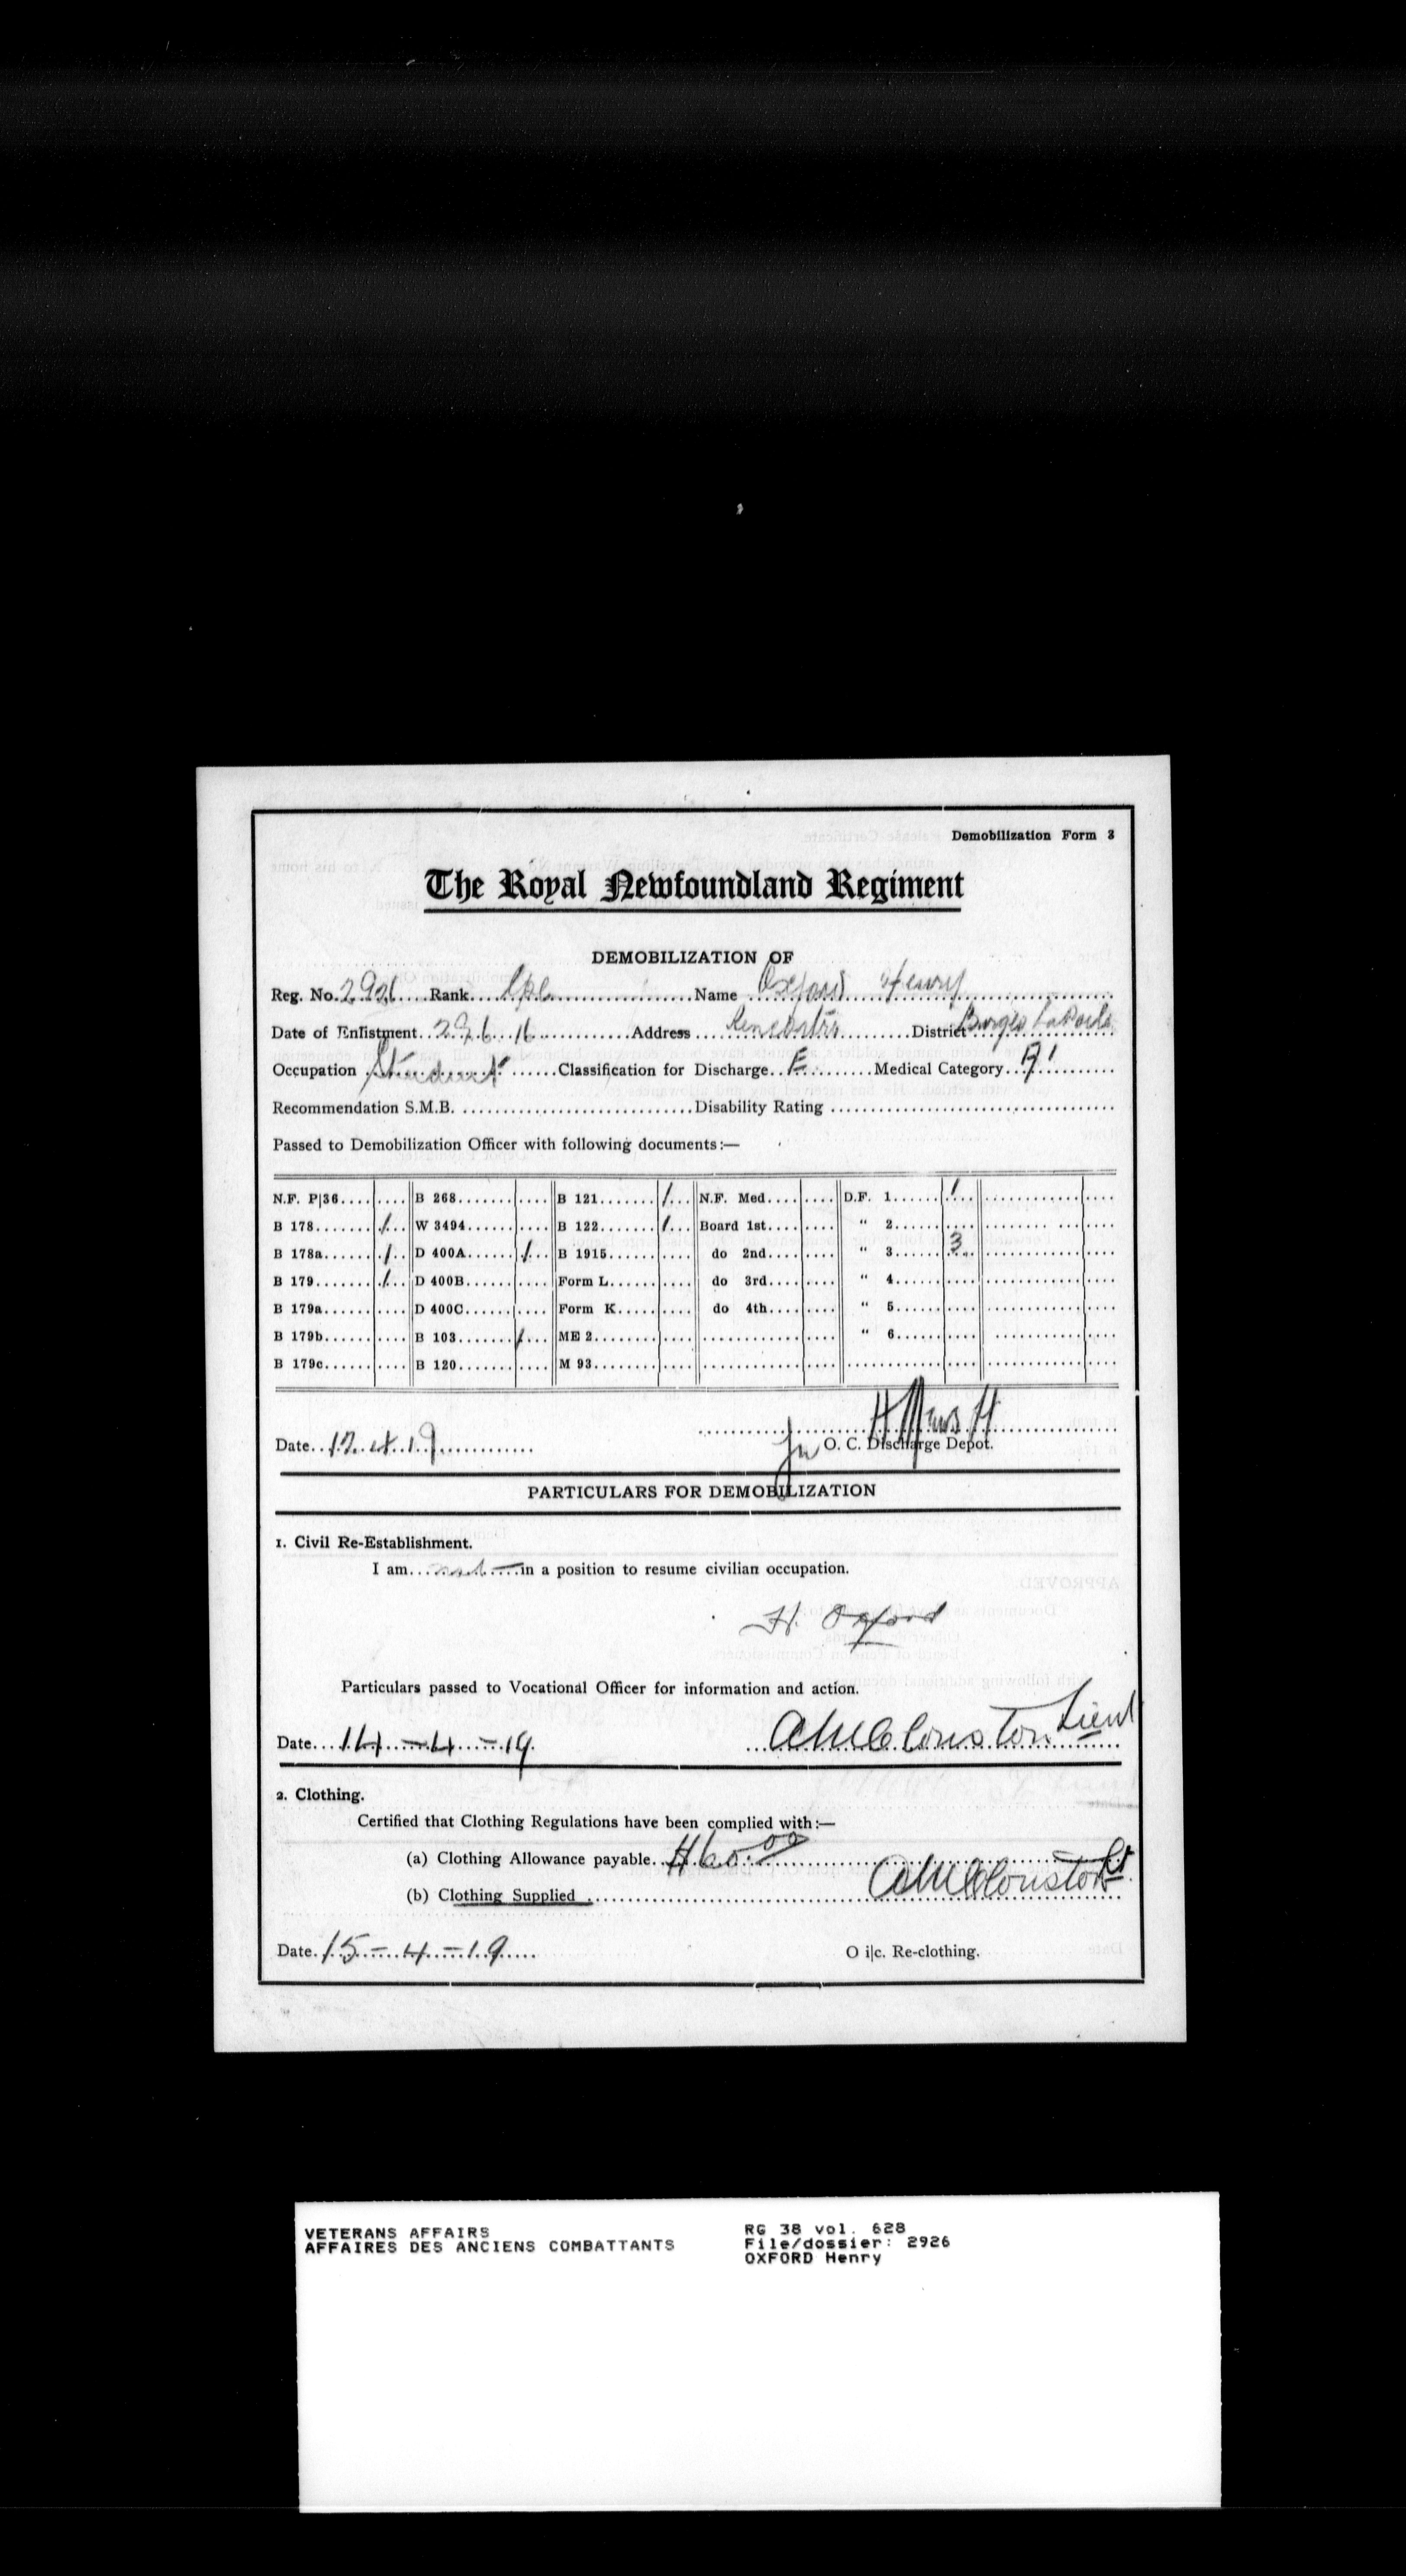 Demobilization Form 3
The Royal Newfoundland Regiment
DEMOBILIZATION OF
Reg. No. 2926 Rank Cpl Name Oxford Henry
Date of Enlistment 29.6.16 Address Rencontre District Burgeo LaPoile
Occupation Student Classification for Discharge E Medical Category A1
Recommendation S.M.B. Disability Rating
Passed to Demobilization Officer with following documents:—
N.F. P|36 B 268 B 121 1 N.F. Med. D.F. 1 1
B 178 1 W 3494 B 122 1 Board 1st " 2
B 178a 1 D 400A 1 B 1915 do 2nd " 3 3
B 179 1 D 400B Form L do 3rd " 4
B 179a D 400C Form K do 4th " 5
B 179b B 103 1 ME 2 " 6
B 179c B 120 M 93
Date 12.4.19 for O. C. Discharge Depot.
PARTICULARS FOR DEMOBILIZATION
1. Civil Re-Establishment.
I am not in a position to resume civilian occupation.
H. Oxford
Particulars passed to Vocational Officer for information and action.
Date 14-4-19 AMClouston Lieut
2. Clothing.
Certified that Clothing Regulations have been complied with:—
(a) Clothing Allowance payable $60.00
(b) Clothing Supplied AMClouston Lt
Date 15-4-19 O i|c. Re-clothing.
VETERANS AFFAIRS RG 38 vol. 628
AFFAIRES DES ANCIENS COMBATTANTS File/dossier: 2926
OXFORD Henry